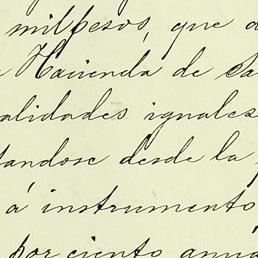 milpesos, que
Hacienda de
alidades iguales
tandose desde la
á instrumento
por ciento anu